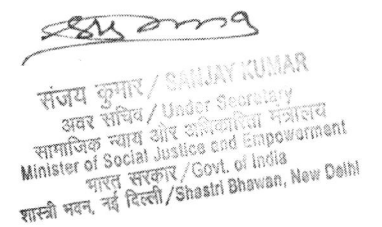 संजय कुमार / SANJAY KUMAR
अवर सचिव / Under Secretary
सामाजिक न्याय और अधिकारिता मंत्रालय
Minister of Social Justice and Empowerment
भारत सरकार / Govt. of India
शास्त्री भवन, नई दिल्ली / Shastri Bhawan, New Delhi